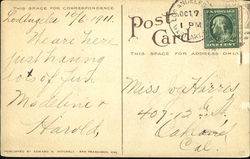 THIS SPACE FOR CORRESPONDENCE
Los Angeles 10/6 1911.
We are here
just having
lots of fun
Madeline &
Harold.
PUBLISHED BY EDWARD H. MITCHELL, SAN FRANCISCO, CAL.
Post
Card
THIS SPACE FOR ADDRESS ONLY
OCT 7
1 PM
Miss V. Harris,
407-12th St.
Oakland
Cal.